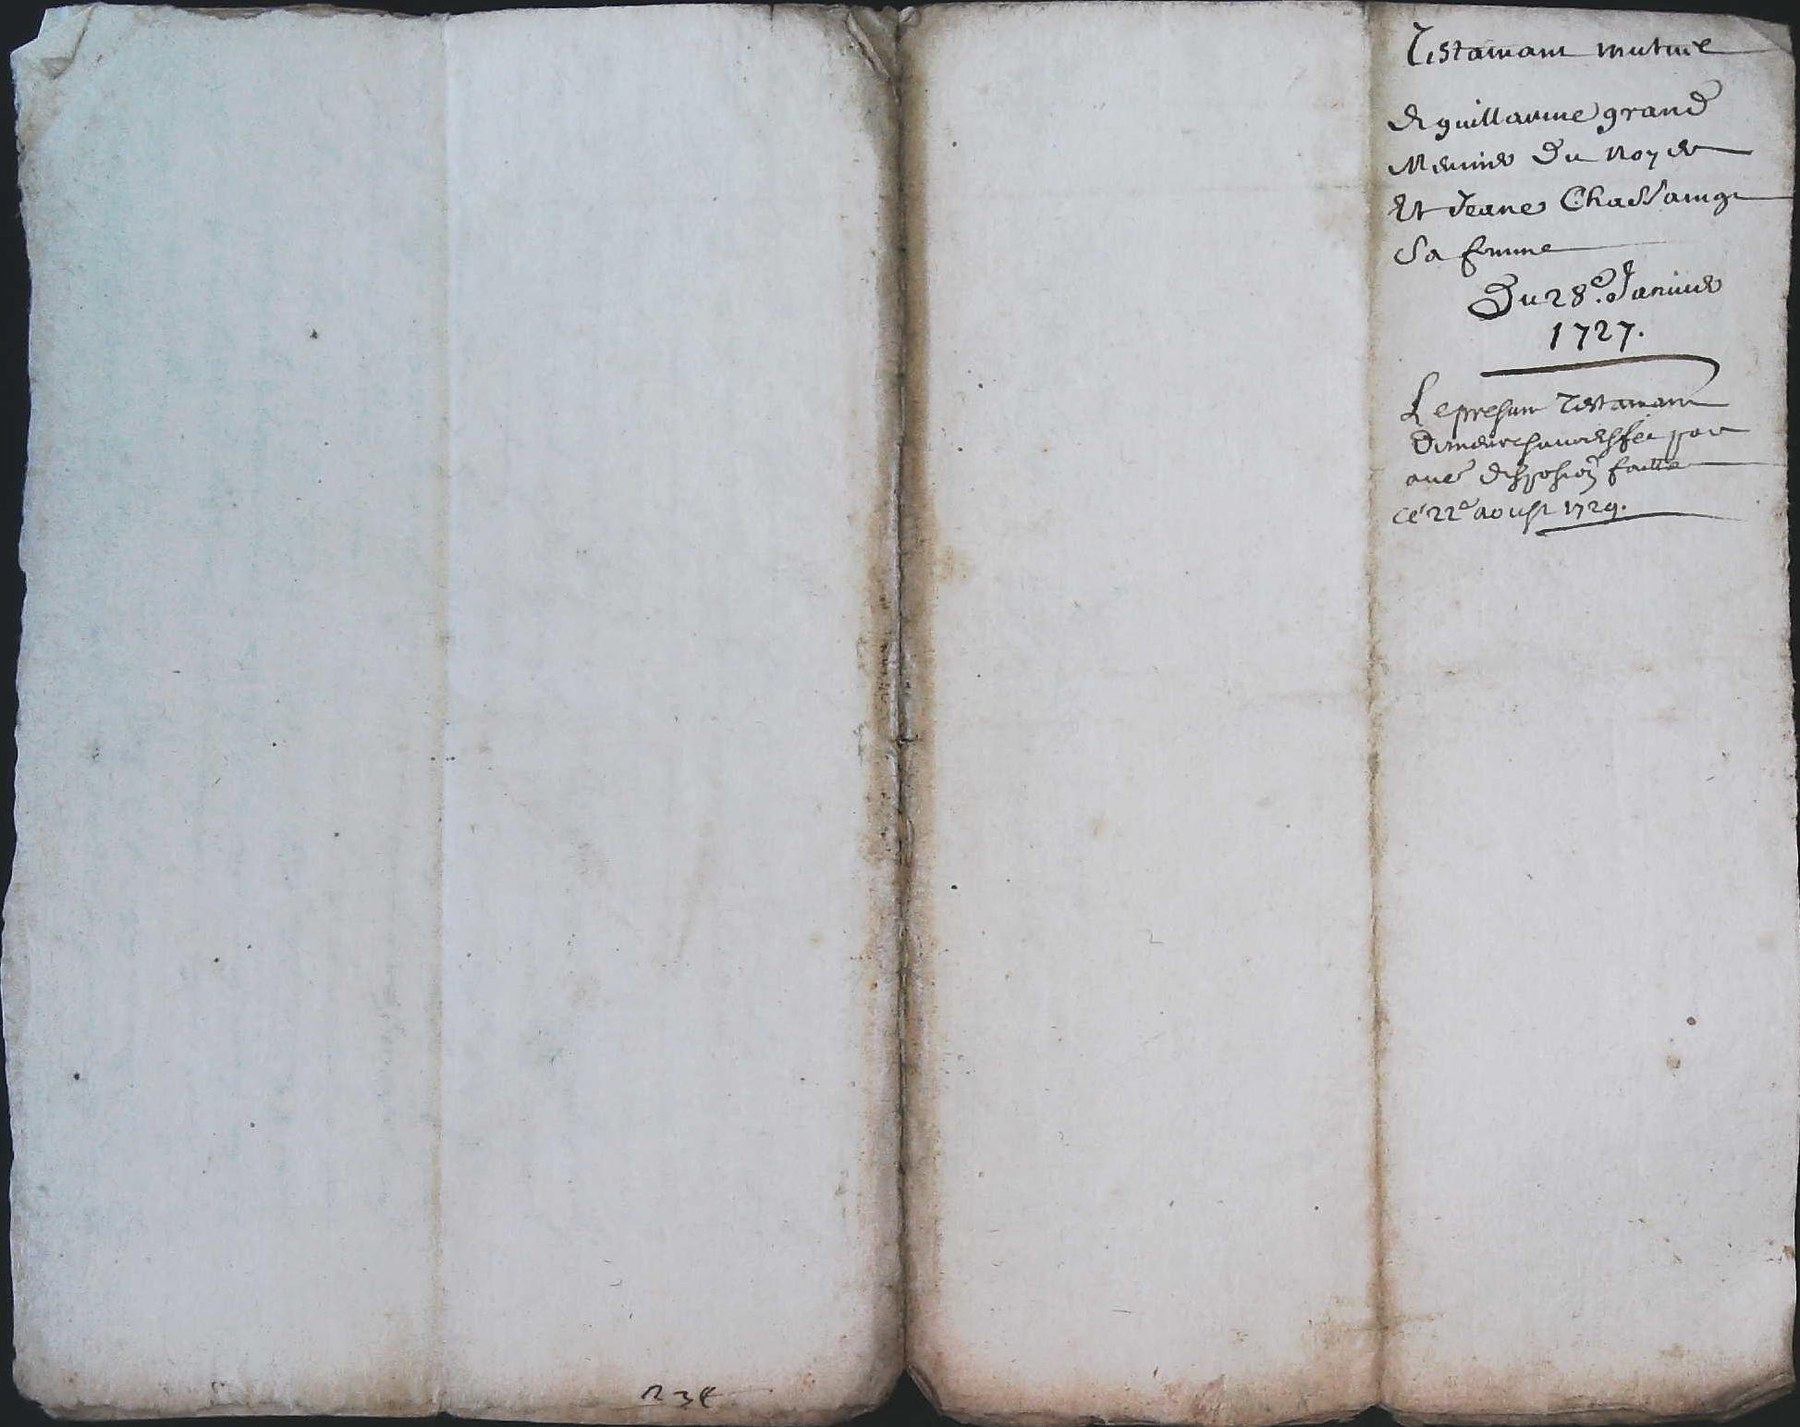 Testamant mutuel
de guillaume grand
Meunier du noyer
Et Jeane Chassaing
Sa femme
Du 28e. Janvier
1727.
Le presant Testamant
Demeure sans effet par
autre disposion faitte
ce 22e aoust 1729.